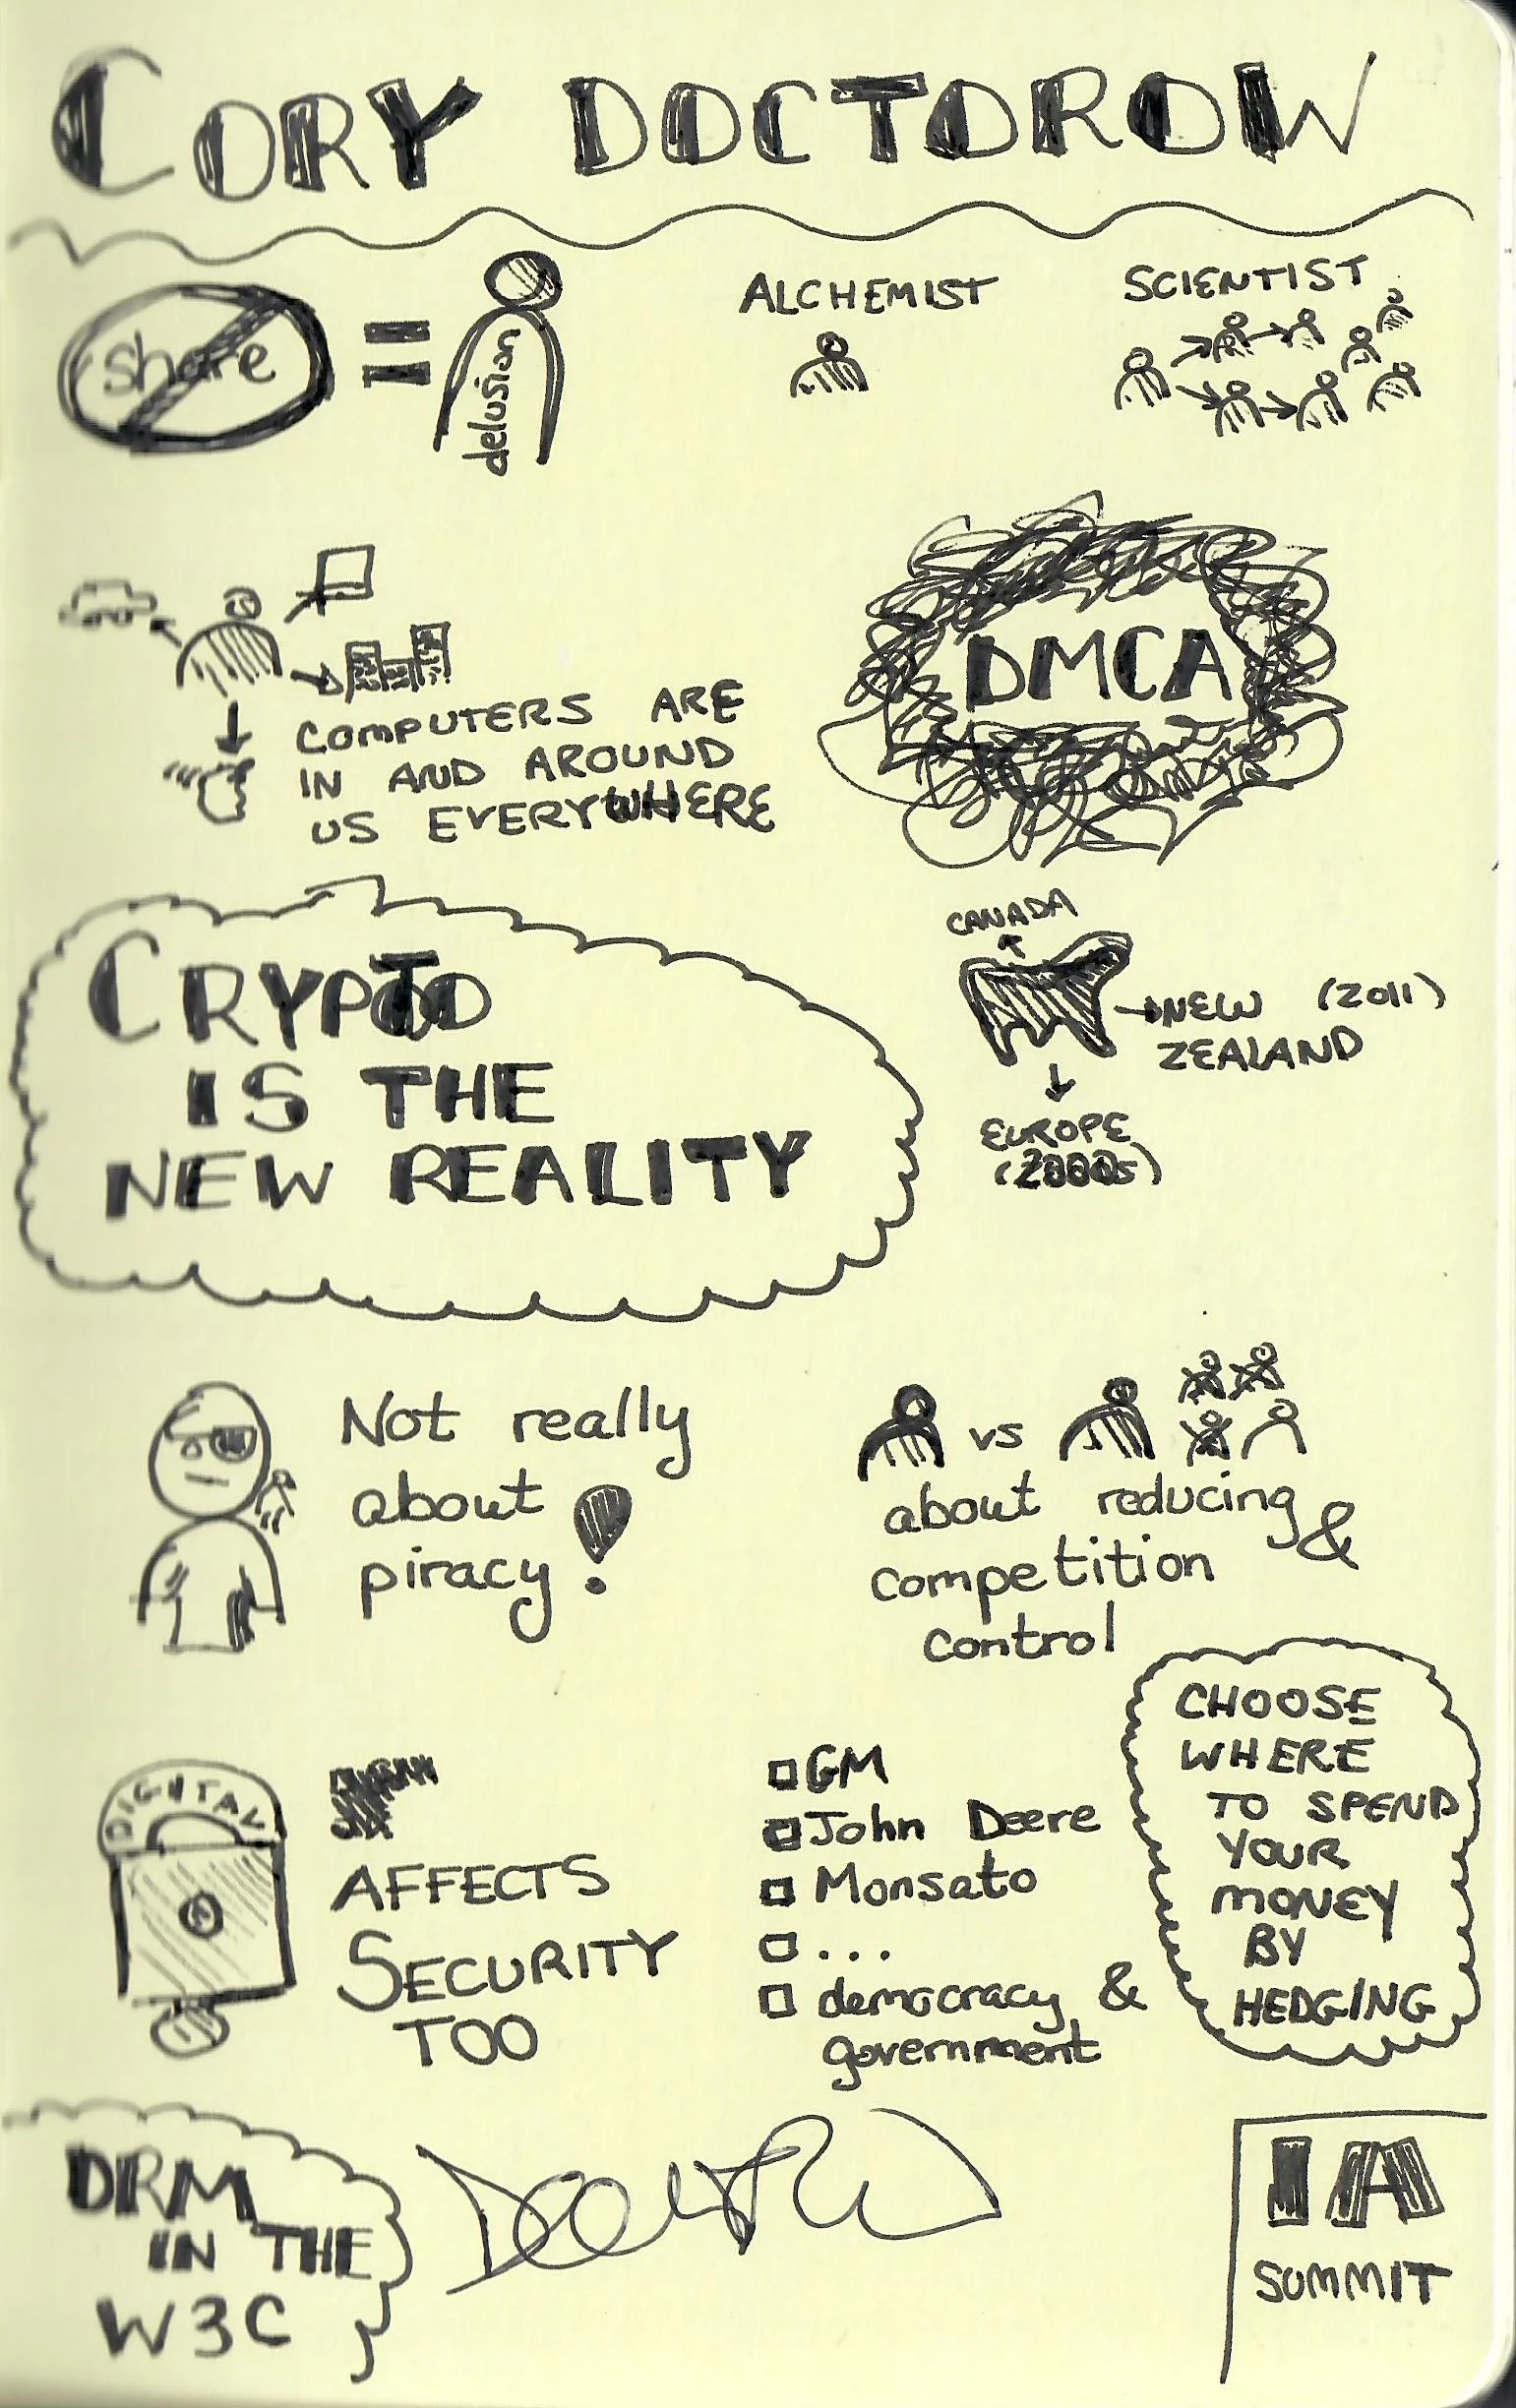 CORY DOCTOROW
share
delusion
ALCHEMIST
SCIENTIST
COMPUTERS ARE
IN AND AROUND
US EVERYWHERE
DMCA
CRYPTO
IS THE
NEW REALITY
CANADA
NEW (2011)
ZEALAND
EUROPE
(2000s)
Not really
about
piracy!
vs
about reducing
competition &
control
DIGITAL
AFFECTS
SECURITY
TOO
GM
John Deere
Monsato
...
democracy &
government
CHOOSE
WHERE
TO SPEND
YOUR
MONEY
BY
HEDGING
DRM
IN THE
W3C
IA
SUMMIT